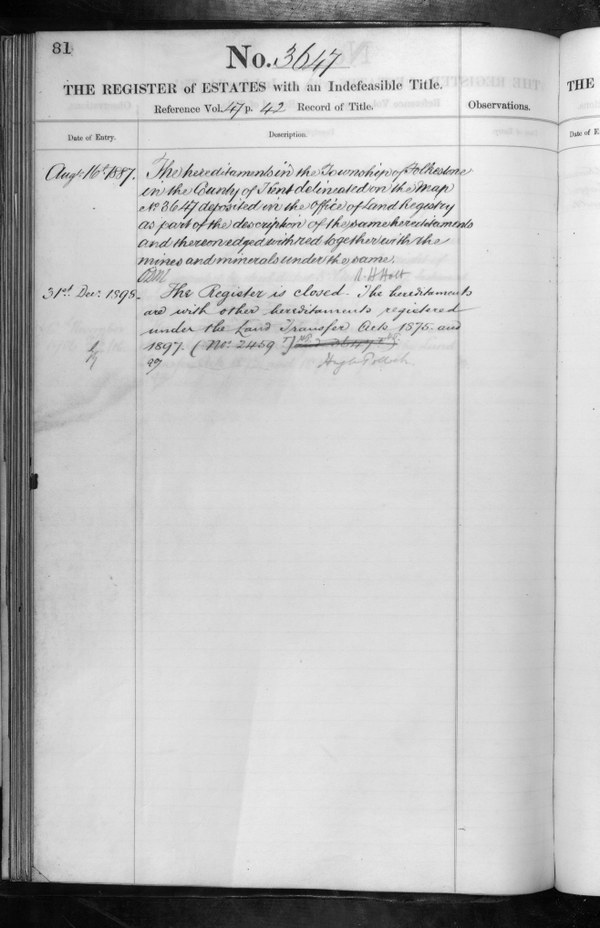 81
No. 3647
THE REGISTER of ESTATES with an Indefeasible Title.
Reference Vol. 47 p. 42 Record of Title.
Observations.
Date of Entry.
Description.
Augt 16th 1887.
The hereditaments in the Township of Folkestone
in the County of Kent delineated on the Map
No 3647 deposited in the Office of Land Registry
as part of the description of the same hereditaments
and thereon edged with red together with the
mines and minerals under the same.
R H Holt
31st Decr 1898.
The Register is closed. The hereditaments
are with other hereditaments registered
under the Land Transfer Acts 1875 and
1897. (No: 2459
Hugh Pollock
THE
Date of E